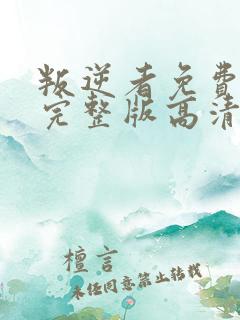 叛逆者免费
完整版高清
檀言
未经同意禁止转载